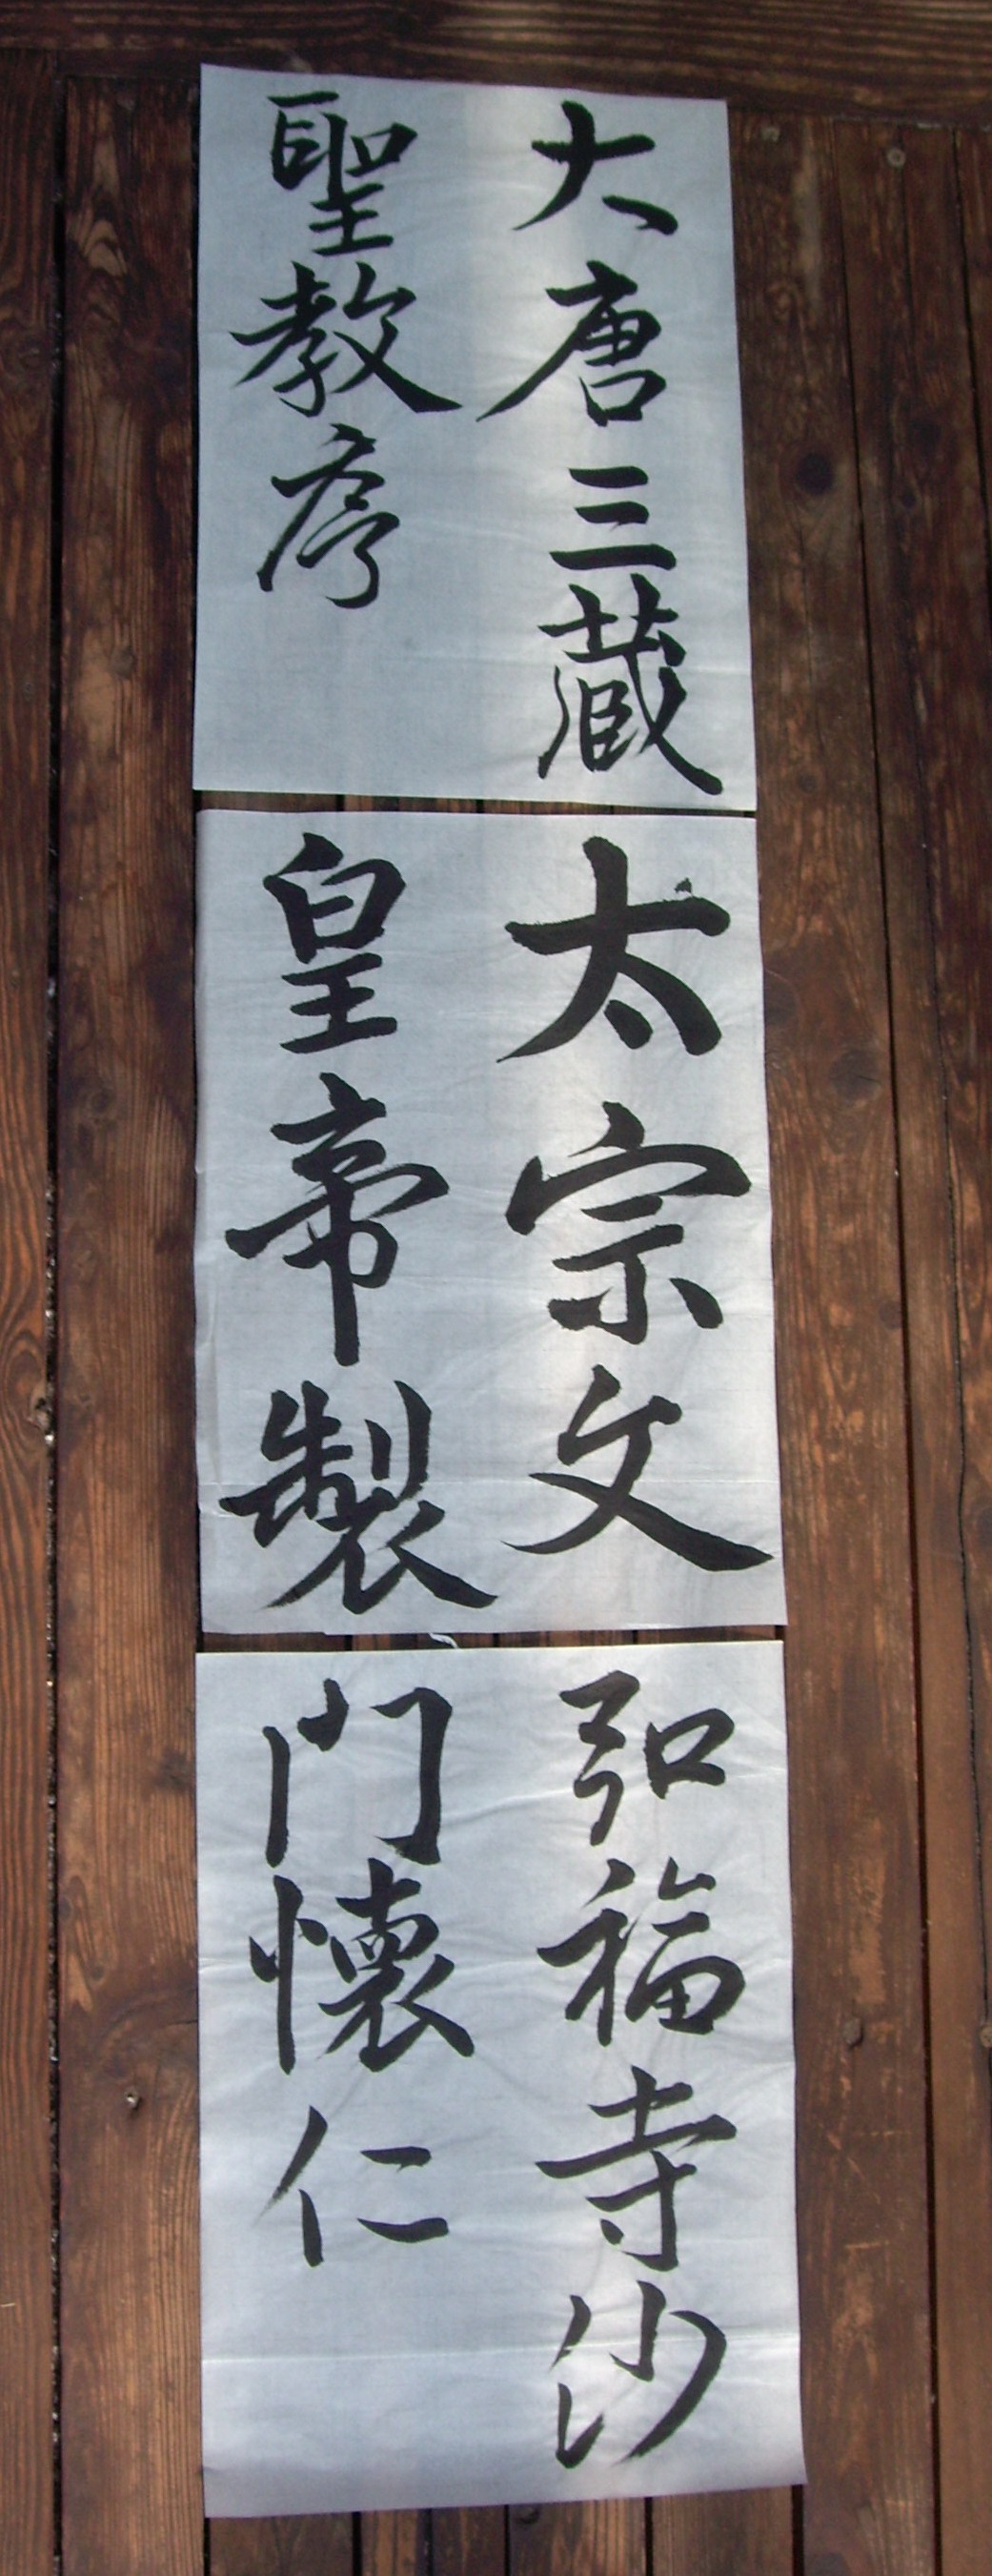 大唐三蔵
聖教序
太宗文
皇帝製
弘福寺沙
門懐仁